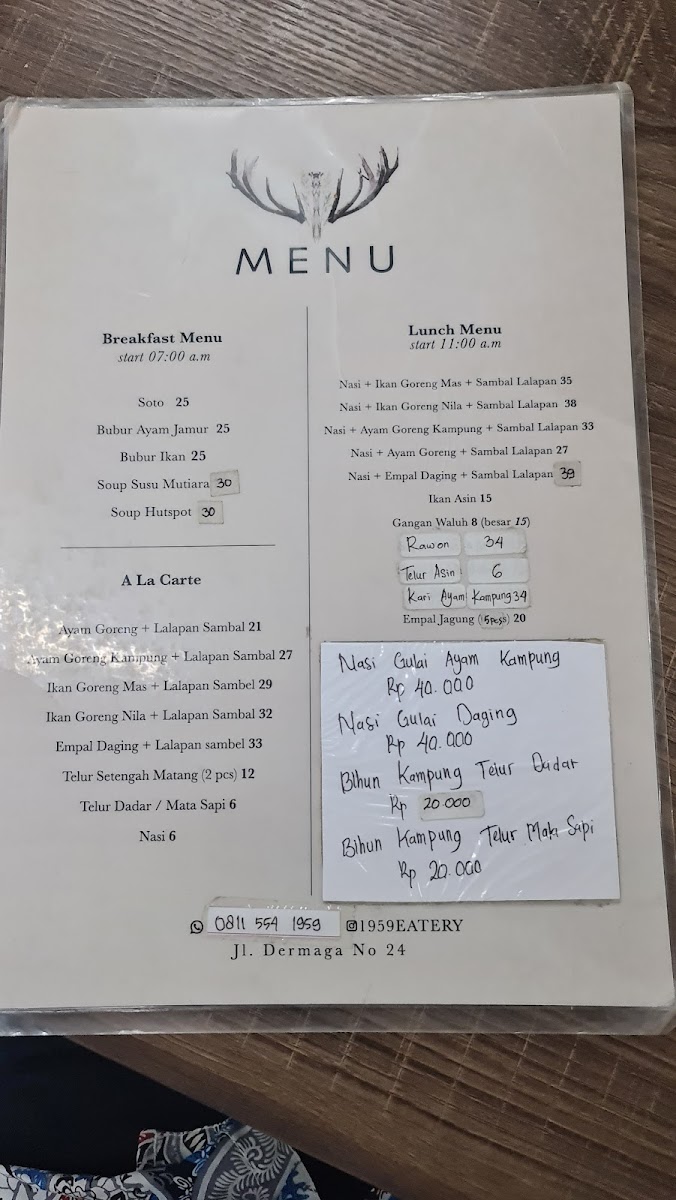 MENU
Breakfast Menu
start 07:00 a.m
Soto 25
Bubur Ayam Jamur 25
Bubur Ikan 25
Soup Susu Mutiara 30
Soup Hutspot 30
A La Carte
Ayam Goreng + Lalapan Sambal 21
Ayam Goreng Kampung + Lalapan Sambal 27
Ikan Goreng Mas + Lalapan Sambel 29
Ikan Goreng Nila + Lalapan Sambal 32
Empal Daging + Lalapan sambel 33
Telur Setengah Matang (2 pcs) 12
Telur Dadar / Mata Sapi 6
Nasi 6
Lunch Menu
start 11:00 a.m
Nasi + Ikan Goreng Mas + Sambal Lalapan 35
Nasi + Ikan Goreng Nila + Sambal Lalapan 38
Nasi + Ayam Goreng Kampung + Sambal Lalapan 33
Nasi + Ayam Goreng + Sambal Lalapan 27
Nasi + Empal Daging + Sambal Lalapan 39
Ikan Asin 15
Gangan Waluh 8 (besar 15)
Rawon 34
Telur Asin 6
Kari Ayam Kampung 34
Empal Jagung (5pcs) 20
Nasi Gulai Ayam Kampung
Rp 40.000
Nasi Gulai Daging
Rp 40.000
Bihun Kampung Telur Dadar
Rp 20.000
Bihun Kampung Telur Mata Sapi
Rp 20.000
0811 554 1959 1959EATERY
Jl. Dermaga No 24